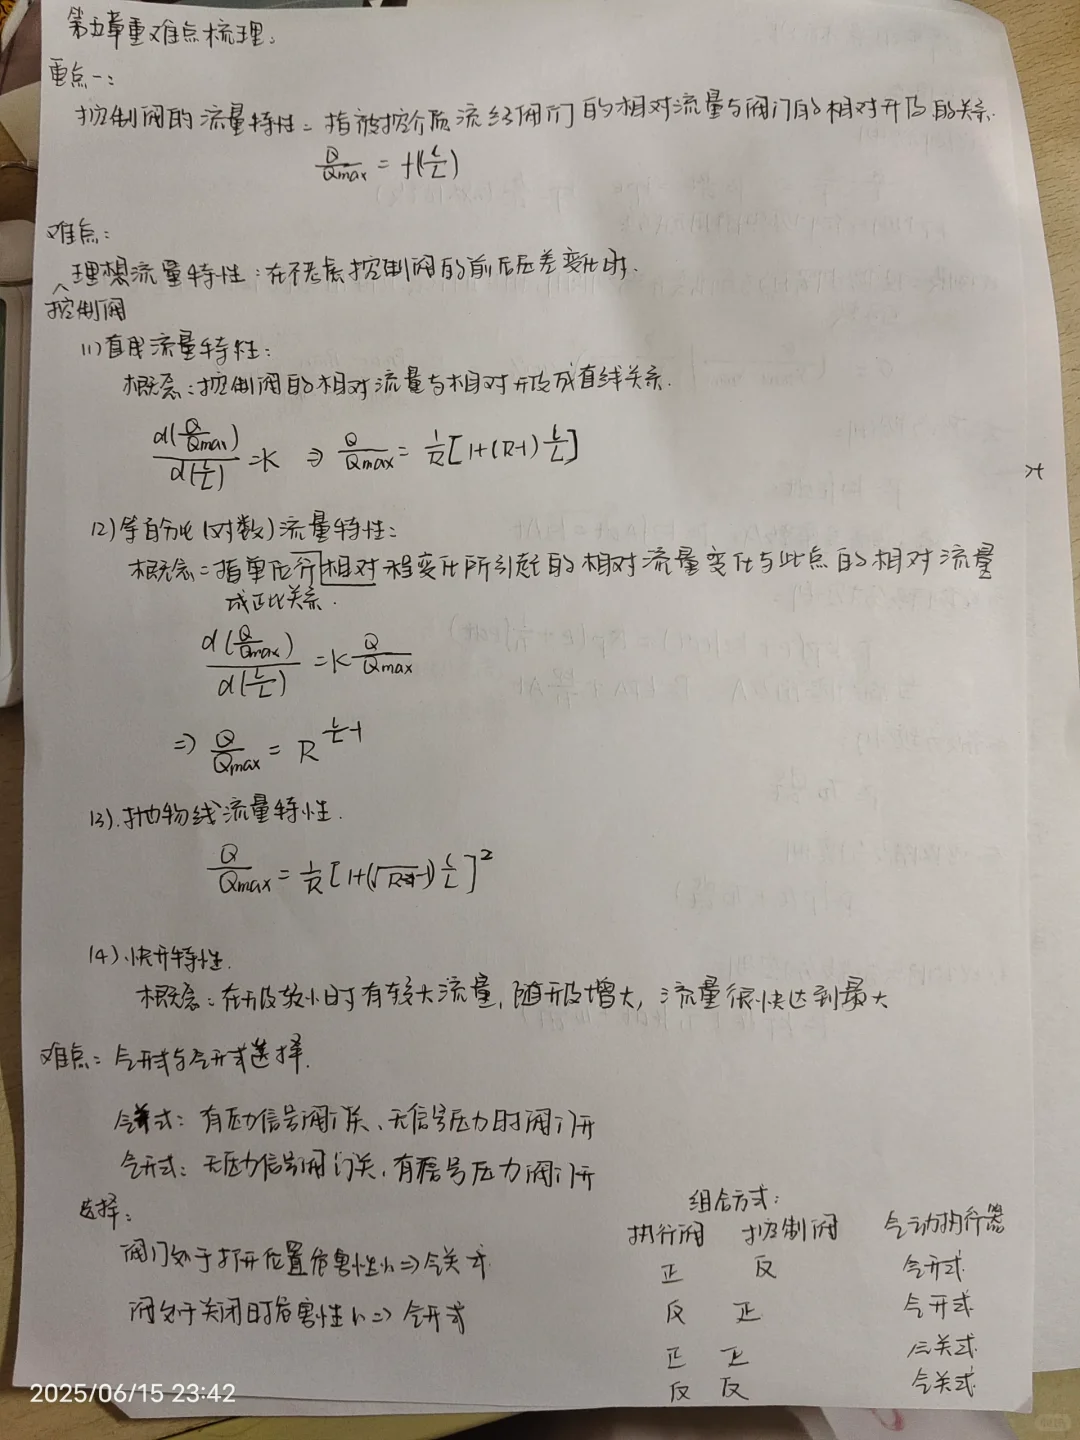 第五章重难点梳理:
重点一:
控制阀的流量特性: 指被控介质流经阀门的相对流量与阀门的相对开度的关系.
Q/Qmax = f(l/L)
难点:
理想流量特性: 在不考虑控制阀的前后压差变化时.
^控制阀
(1)直线流量特性:
概念: 控制阀的相对流量与相对开度成直线关系.
d(Q/Qmax)/d(l/L) = K ⇒ Q/Qmax = 1/R[1+(R-1) l/L]
(2)等百分比(对数)流量特性:
概念: 指单位行相对程变化所引起的相对流量变化与此点的相对流量
成正比关系.
d(Q/Qmax)/d(l/L) = K Q/Qmax
⇒ Q/Qmax = R^(l/L-1)
(3).抛物线流量特性.
Q/Qmax = 1/R[1+(√R-1) l/L]²
(4).快开特性.
概念: 在开度较小时有较大流量, 随开度增大, 流量很快达到最大
难点: 气开式与气开式选择.
气关式: 有压力信号阀门关、无信号压力时阀门开
气开式: 无压力信号阀门关, 有信号压力阀门开
选择:
阀门处于打开位置危害性小⇒气关式.
阀处于关闭时危害性小⇒ 气开式
组合方式:
执行阀 控制阀 气动执行器
正 反 气开式
反 正 气开式
正 正 气关式
反 反 气关式
2025/06/15 23:42